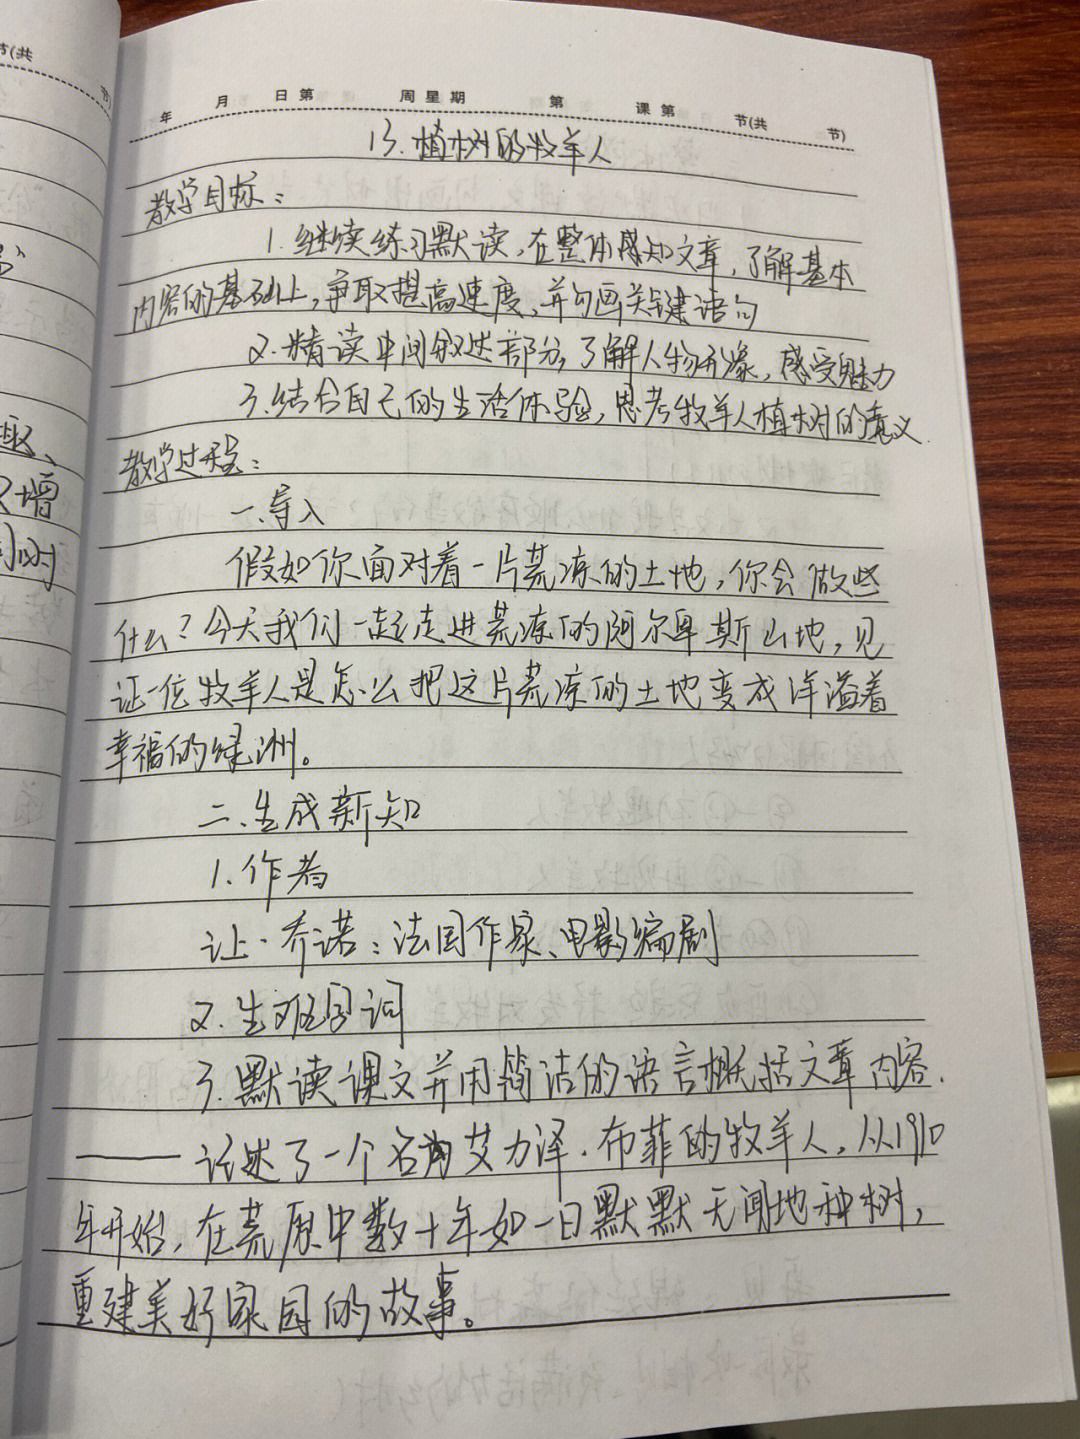 节(共
节)
年 月 日第 周星期 第 课第 节(共 节)
13.植树的牧羊人
教学目标：
1.继续练习默读，在整体感知文章，了解基本
内容的基础上，争取提高速度，并勾画关键语句
2.精读中间叙述部分，了解人物形象，感受魅力
3.结合自己的生活体验，思考牧羊人植树的意义.
教学过程：
一.导入
假如你面对着一片荒凉的土地，你会做些
什么？今天我们一起走进荒凉的阿尔卑斯山地，见
证一位牧羊人是怎么把这片荒凉的土地变成洋溢着
幸福的绿洲。
二.生成新知
1.作者
让·乔诺：法国作家、电影编剧
2.生难字词
3.默读课文并用简洁的语言概括文章内容.
——记述了一个名为艾力泽.布菲的牧羊人，从1910
年开始，在荒原中数十年如一日默默无闻地种树，
重建美好家园的故事。
趣、
增
同时